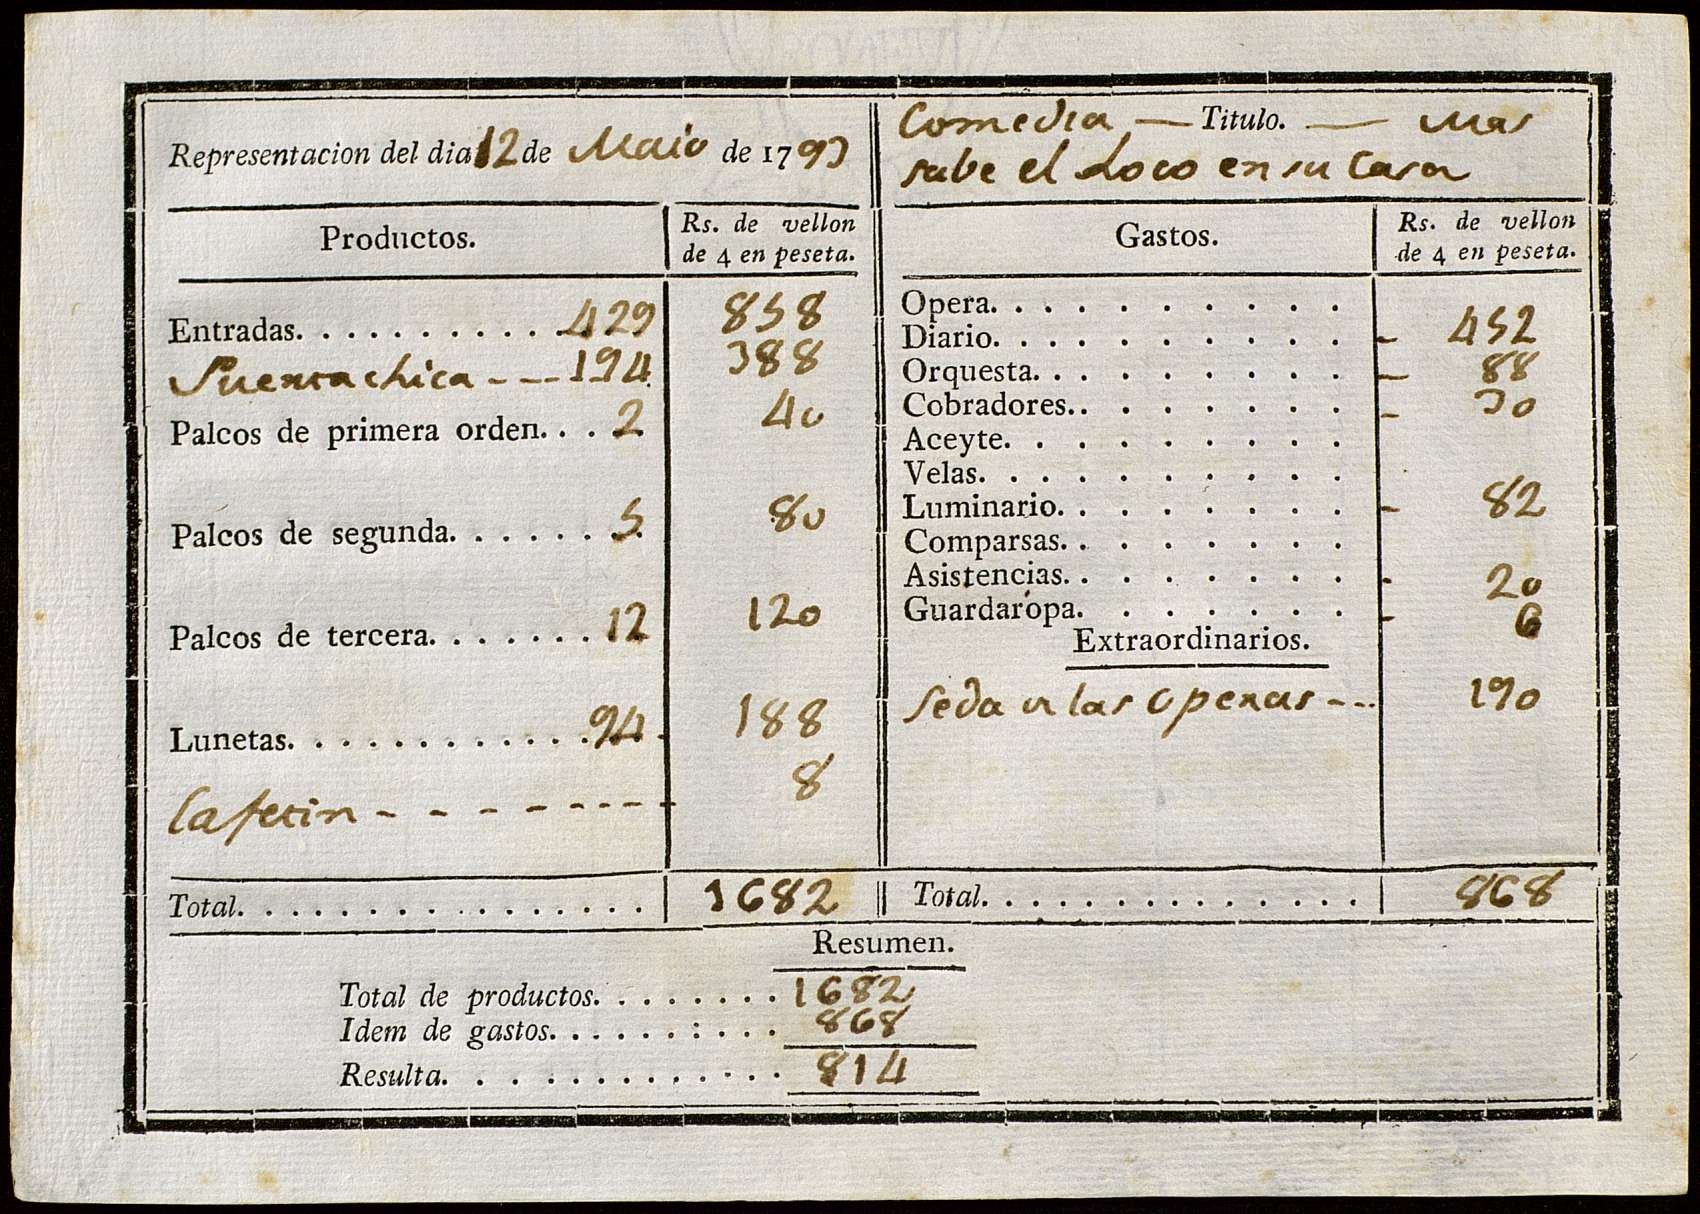 Representacion del dia 12 de Maio de 1793
Comedia — Titulo. — Mas
sabe el Loco en su Casa
Productos.
Rs. de vellon
de 4 en peseta.
Entradas. . . . . . . . . . . 429 858
Puerta chica - - - 194 388
Palcos de primera orden. . . 2 40
Palcos de segunda. . . . . . . 5 80
Palcos de tercera. . . . . . . 12 120
Lunetas. . . . . . . . . . . . 94 188
Cafetin - - - - - - - - 8
Total. . . . . . . . . . . . . . . . 1682
Gastos.
Rs. de vellon
de 4 en peseta.
Opera. . . . . . . . . .
Diario. . . . . . . . . . - 452
Orquesta. . . . . . . . . - 88
Cobradores. . . . . . . . - 30
Aceyte. . . . . . . . .
Velas. . . . . . . . . .
Luminario. . . . . . . . - 82
Comparsas. . . . . . . .
Asistencias. . . . . . . . - 20
Guardaropa. . . . . . . - 6
Extraordinarios.
Seda a las Operas - - - 190
Total. . . . . . . . . . . . . . . 868
Resumen.
Total de productos. . . . . . . . 1682
Idem de gastos. . . . . . : . . . 868
Resulta. . . . . . . . . . . . . 814